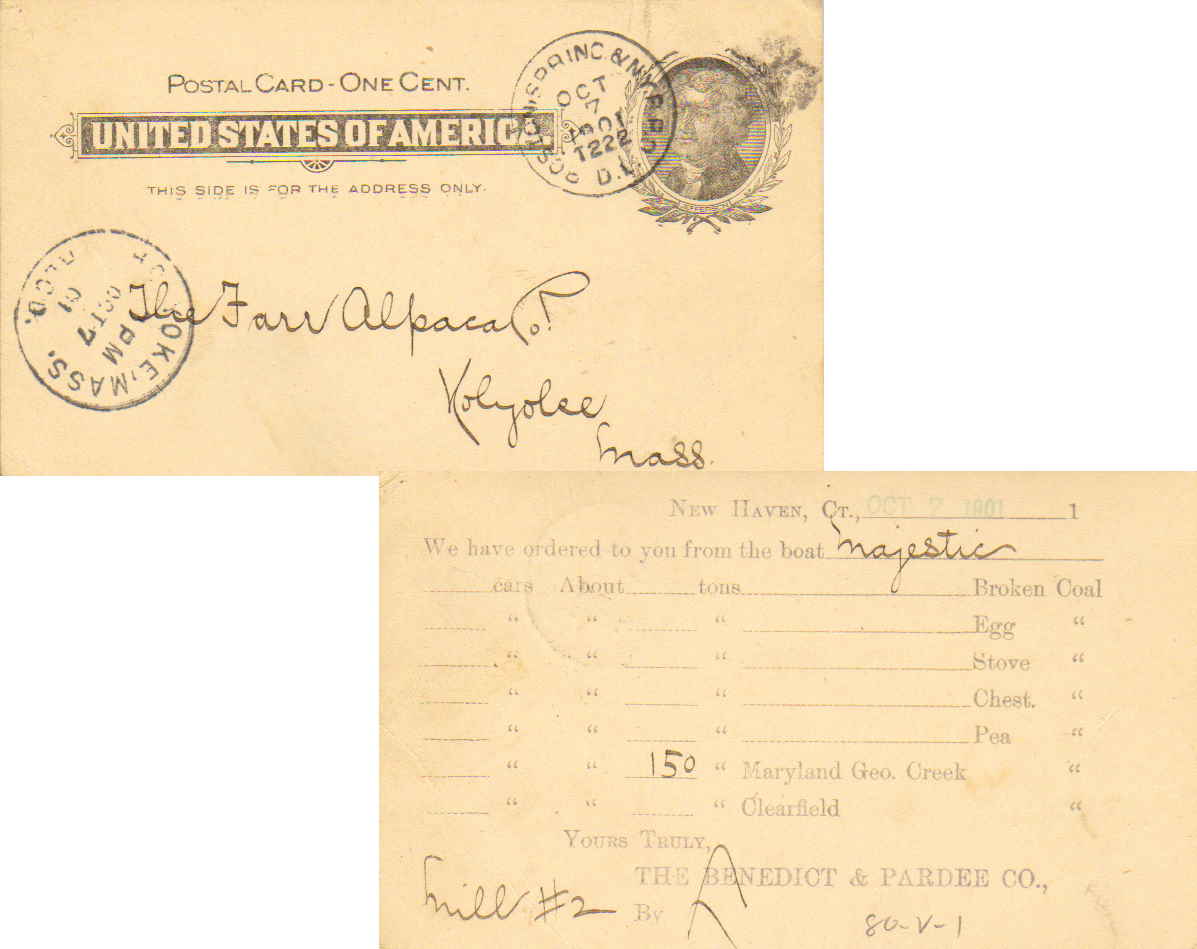 POSTAL CARD - ONE CENT.
UNITED STATES OF AMERICA.
THIS SIDE IS FOR THE ADDRESS ONLY.
BOST. SPRING. & N.Y. R.P.O.
OCT
7
1901
T222
D.L.
JEFFERSON
HOLYOKE, MASS.
OCT 7
PM
01
REC'D.
The Farr Alpaca Co.
Holyoke
Mass.
NEW HAVEN, CT., OCT 7 1901 1
We have ordered to you from the boat Majestic
cars About tons Broken Coal
" " " Egg "
" " " Stove "
" " " Chest. "
" " " Pea "
" " 150 " Maryland Geo. Creek "
" " " Clearfield "
YOURS TRULY,
THE BENEDICT & PARDEE CO.,
Mill #2 By
80-V-1